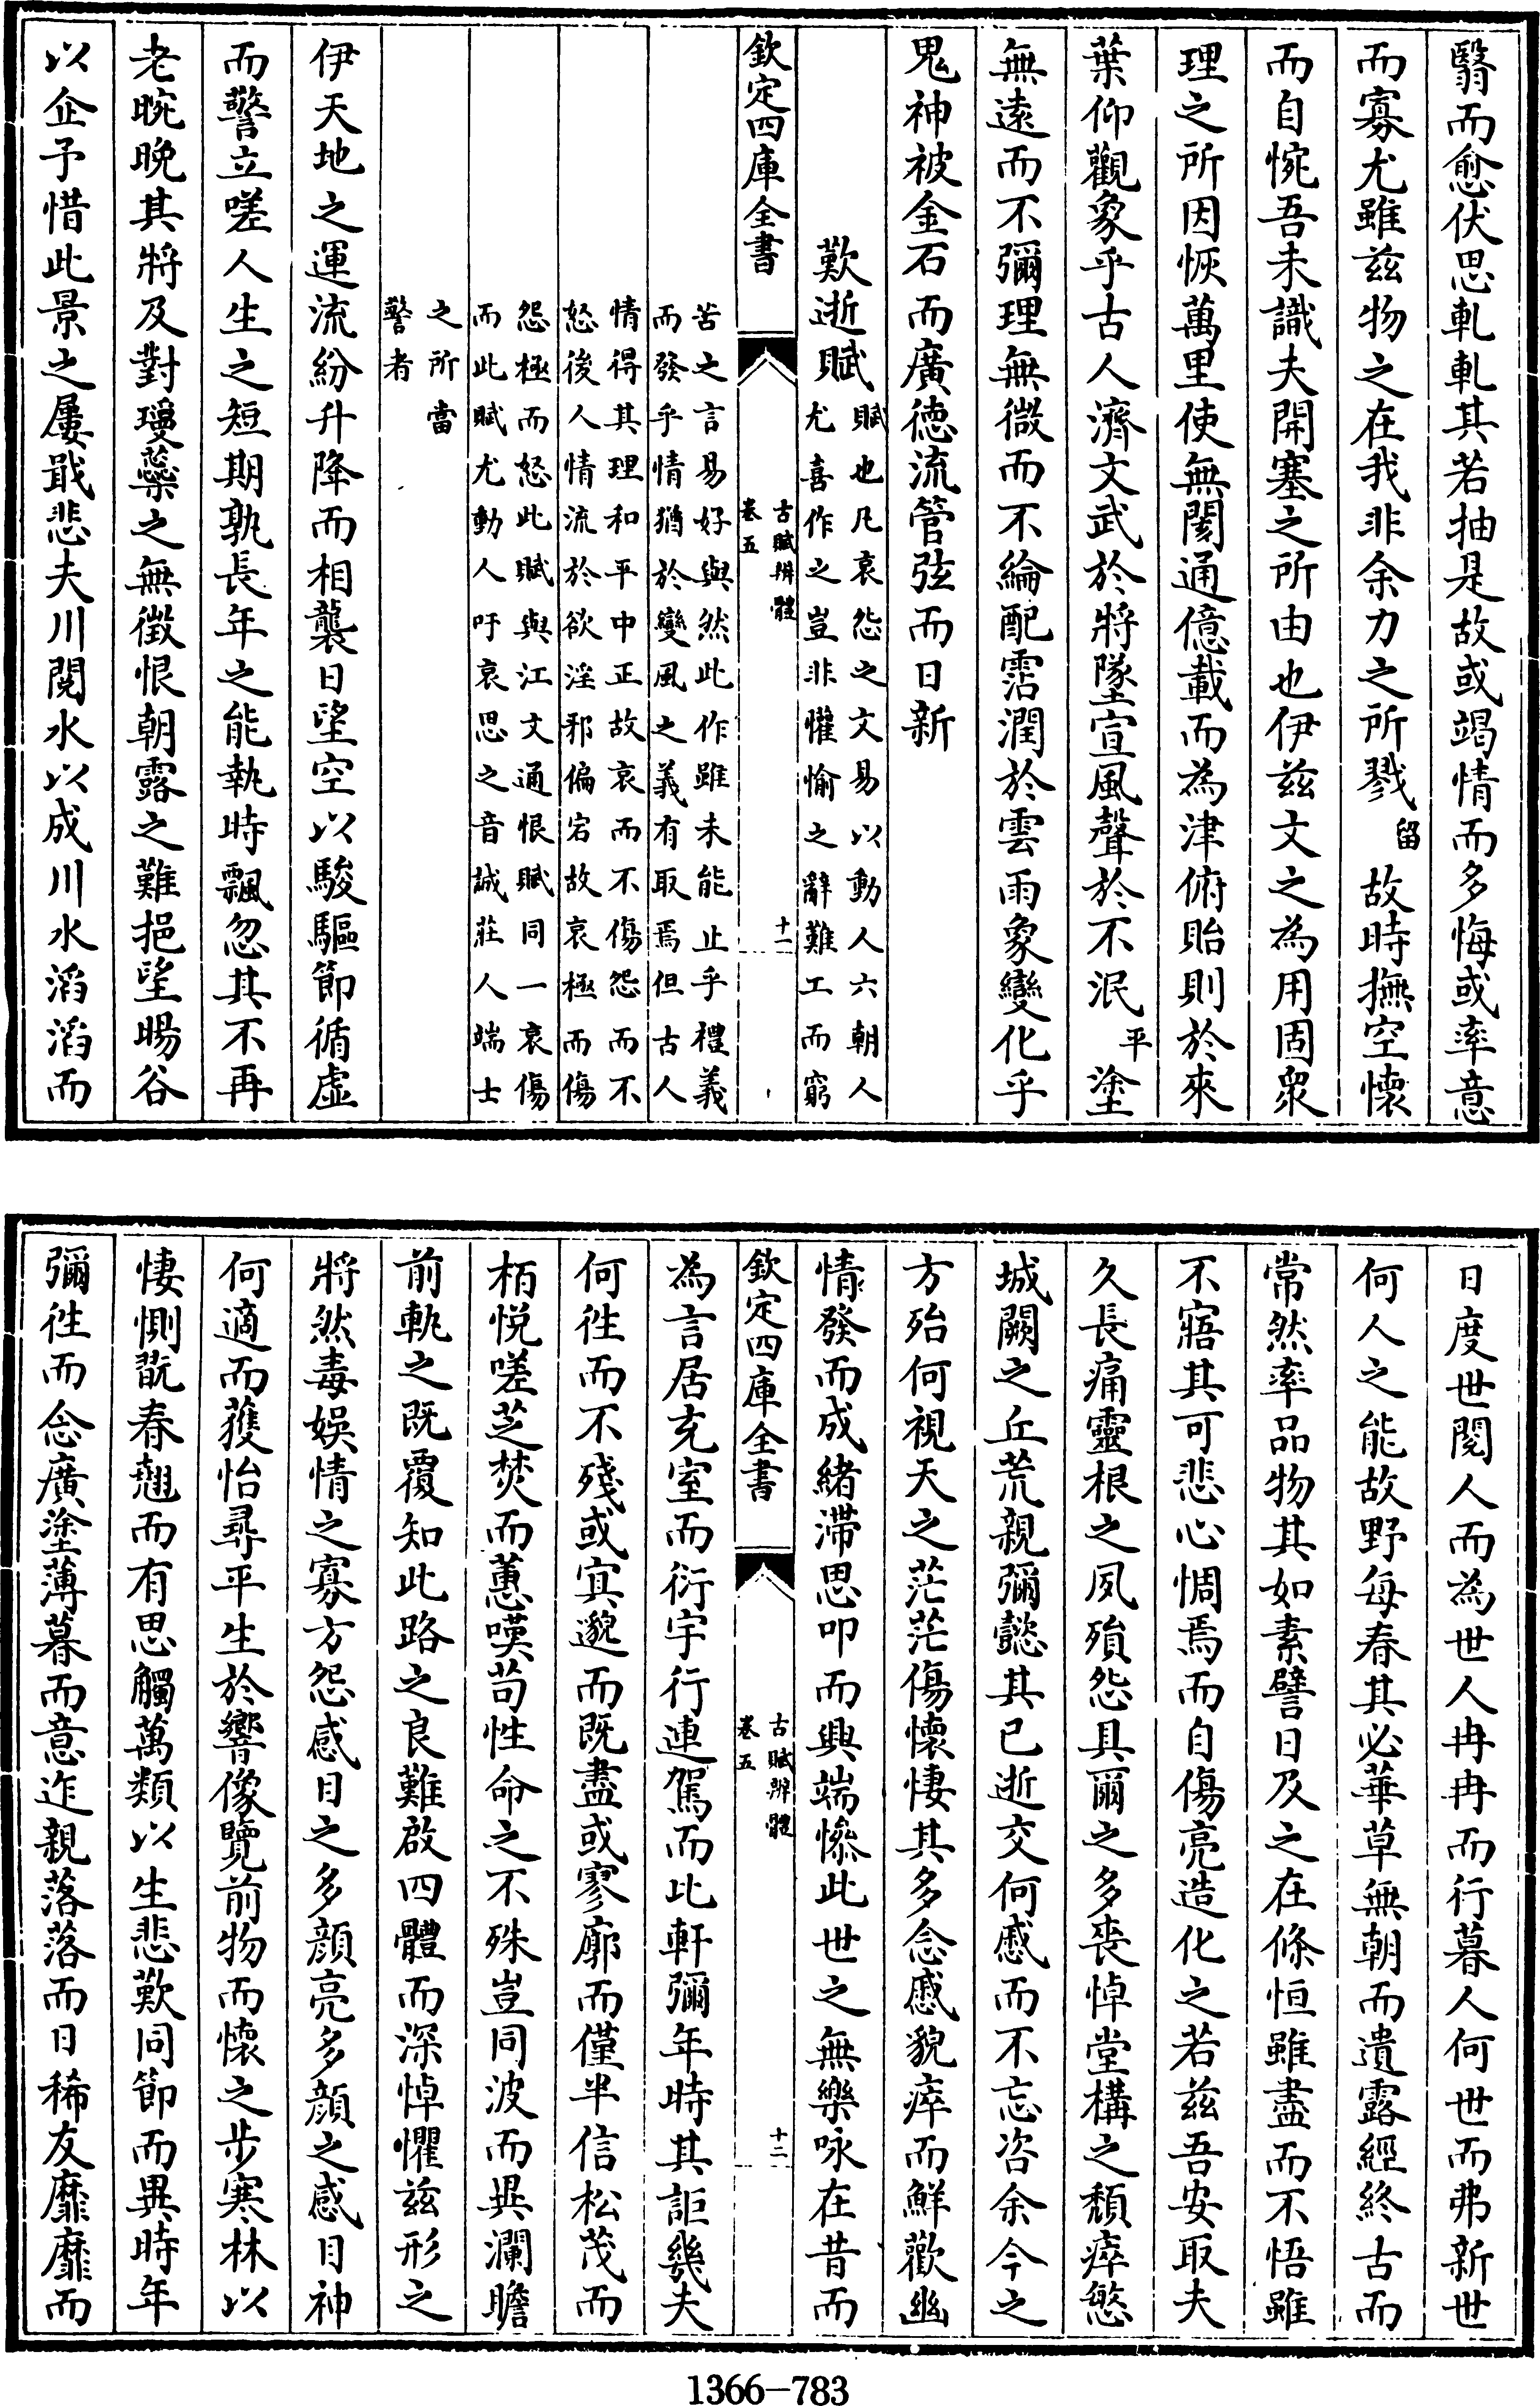 翳而愈伏思軋軋其若抽是故或竭情而多悔或率意
而寡尤雖兹物之在我非余力之所戮留故時撫空懷
而自惋吾未識夫開塞之所由也伊兹文之為用固衆
理之所因恢萬里使無閡通億載而為津俯貽則於來
葉仰觀象乎古人濟文武於將墜宣風聲於不泯平塗
無遠而不彌理無微而不綸配霑潤於雲雨象變化乎
鬼神被金石而廣徳流管弦而日新
歎逝賦
賦也凡哀怨之文易以動人六朝人
尤喜作之豈非懽愉之辭難工而窮
欽定四庫全書
古賦辨體
卷五
十一
苦之言易好與然此作雖未能止乎禮義
而發乎情猶於變風之義有取焉但古人
情得其理和平中正故哀而不傷怨而不
怒後人情流於欲淫邪偏宕故哀極而傷
怨極而怒此賦與江文通恨賦同一哀傷
而此賦尤動人吁哀思之音誠莊人端士
之所當
警者
伊天地之運流紛升降而相襲日望空以駿驅節循虚
而警立嗟人生之短期孰長年之能執時飄忽其不再
老晼晚其將及對瓊蘂之無徴恨朝露之難挹望暘谷
以企予惜此景之屢戢悲夫川閲水以成川水滔滔而
日度世閲人而為世人冉冉而行暮人何世而弗新世
何人之能故野每春其必華草無朝而遺露經終古而
常然率品物其如素譬日及之在條恒雖盡而不悟雖
不寤其可悲心惆焉而自傷亮造化之若兹吾安取夫
久長痛靈根之夙殞怨具爾之多喪悼堂構之頽瘁慜
城闕之丘荒親彌懿其已逝交何戚而不忘咨余今之
方殆何視天之茫茫傷懐悽其多念慼貌瘁而鮮歡幽
情發而成緒滯思叩而興端慘此世之無樂咏在昔而
欽定四庫全書
古賦辨體
卷五
十二
為言居充室而衍宇行連駕而比軒彌年時其詎幾夫
何徃而不殘或冥邈而既盡或寥廓而僅半信松茂而
栢悦嗟芝焚而蕙嘆苟性命之不殊豈同波而異瀾瞻
前軌之既覆知此路之良難啟四體而深悼懼兹形之
將然毒娛情之寡方怨感目之多顔亮多顔之感目神
何適而獲怡尋平生於響像覽前物而懐之步寒林以
悽惻翫春翹而有思觸萬類以生悲歎同節而異時年
彌徃而念廣塗薄暮而意迮親落落而日稀友靡靡而
1366-783